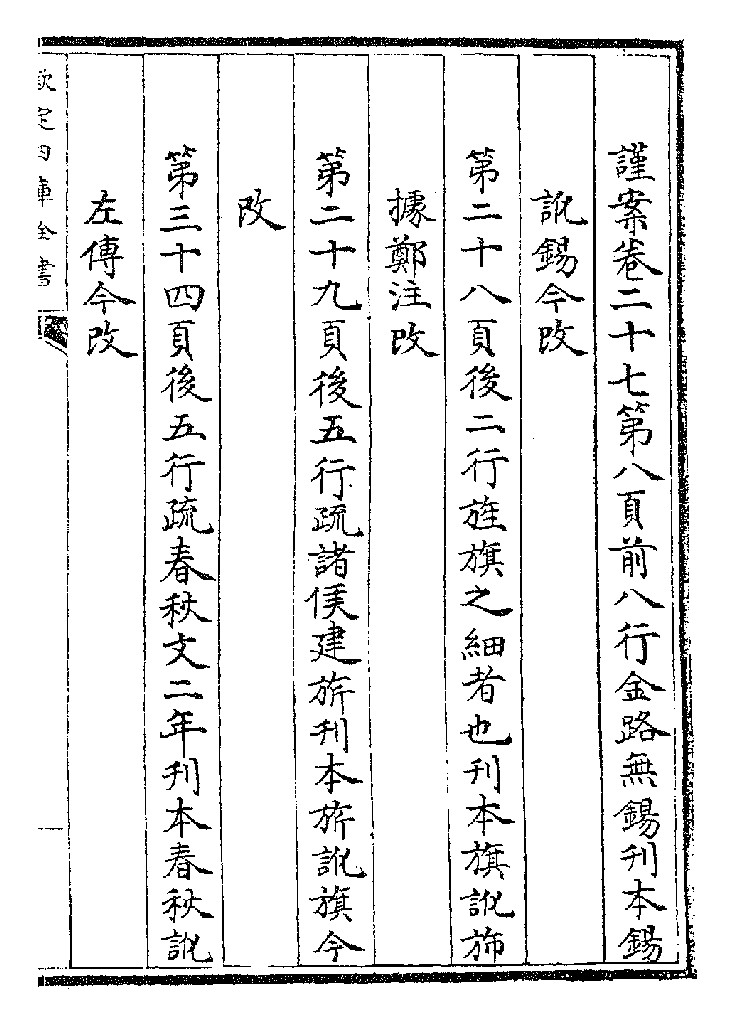 謹案卷二十七第八頁前八行金路無鍚刊本鍚
訛錫今改
第二十八頁後二行旌旗之細者也刊本旗訛斾
據鄭注改
第二十九頁後五行疏諸侯建旂刊本旂訛旗今
改
第三十四頁後五行疏春秋文二年刊本春秋訛
左傳今改
欽定四庫全書